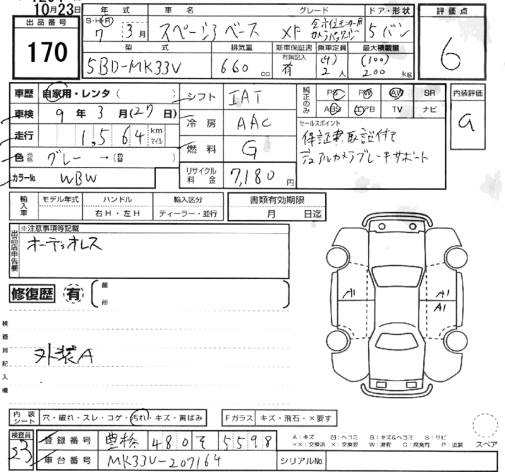 10月23日
出品番号
170
年式
S・H・R
7年3月
車名
スペーシアベース
グレード
XF
ドア・形状
5バン
評価点
6
型式
5BD-MK33V
排気量
660cc
新車保証書
有無記入
有
乗車定員
(4)
2人
最大積載量
(100)
200kg
車歴
自家用・レンタ(
車検
9年3月(27日)
走行
1,564
km
マイル
色
グレー→
カラーNo.
WBW
シフト
IAT
冷房
AAC
燃料
G
リサイクル料金
7,180円
純正のみ
PS
PW
AW
SR
ABS
エアB
TV
ナビ
セールスポイント
保証書取説付て
デュアルカメラブレーキサポート
内装評価
a
輸入車
モデル年式
ハンドル
右H・左H
輸入区分
ディーラー・並行
書類有効期限
月 日迄
出品店申告欄
※注意事項等記載
オーディオレス
修復歴
有
箇所
検査員記入欄
外装A
A1
A1
A1
内装シート
穴・破れ・スレ・コゲ・汚れ・キズ・黄ばみ
Fガラス
キズ・飛石・×要す
スペア
検査員
23
登録番号
豊橋 480 そ 5598
車台番号
MK33V-207164
シリアルNo.
A:キズ